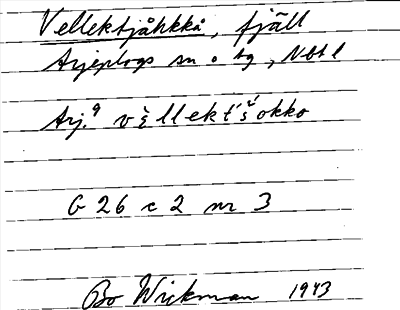 Vellektjåhkkå, fjäll
Arjeplogs sn o tg, Nbtl
Arj.9 vè̮llekt´š´okko
G 26 c 2 nr 3
Bo Wickman 1943